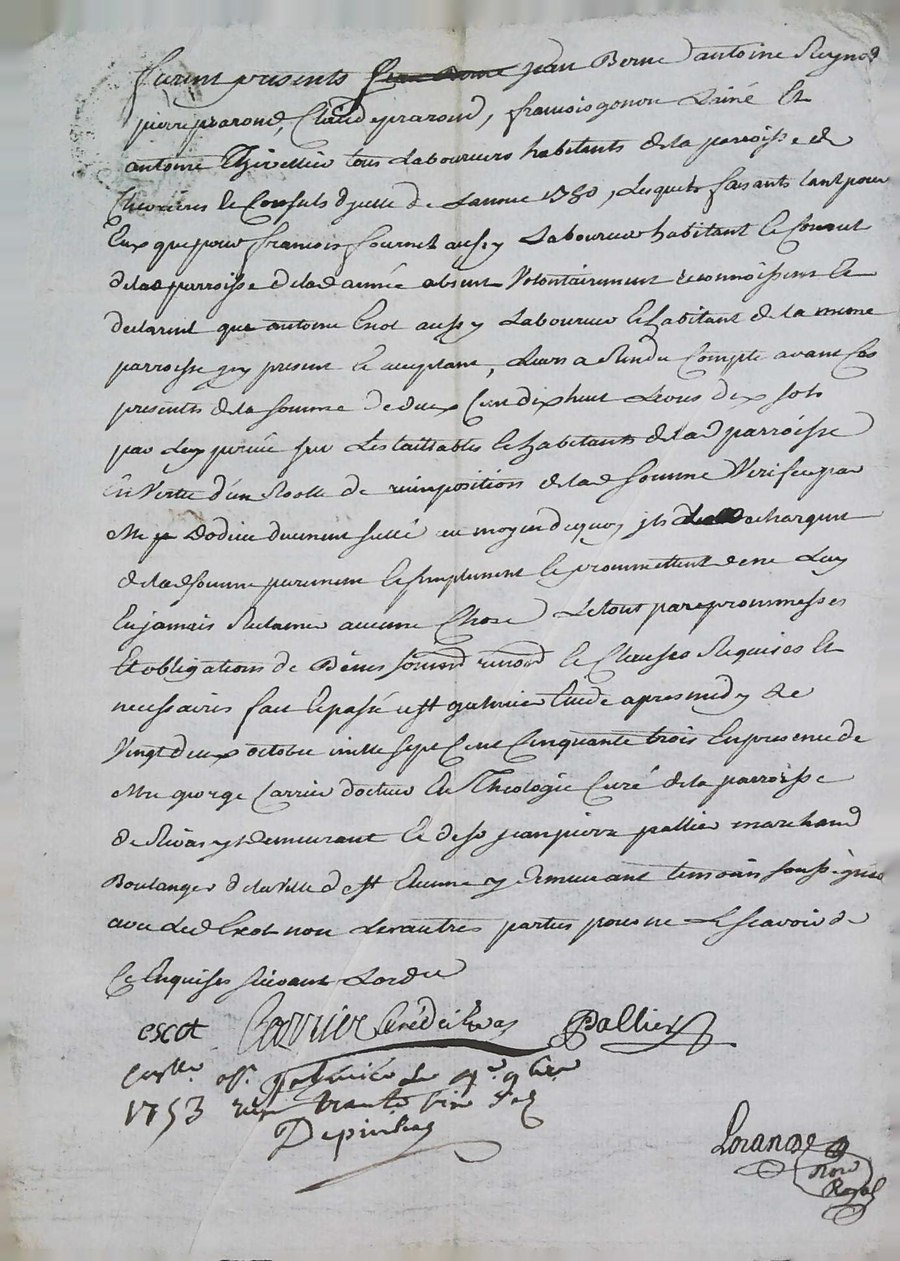 furent presents Jean Berne jean Berne antoine Reynod
pierre prarond, Claude prarond, francois gonon Lainé Et
antoine Thivellier tous Laboureurs habitants de la parroisse de
Chevrieres Et Consuls d'jcelle de Lannee 1750, Lesquels faisants tant pour
Eux que pour francois fournel aussy Laboureur habitant Et Consul
de lad parroisse de lad année absent Volontairement reconnoissent Et
declarent que antoine Escot aussy Laboureur Et habitant de la meme
parroisse jcy present Et acceptant, Leurs a Rendu Compte avant Ces
presentes de la somme de deux Cent dixhuit Livres dix sols
par Luy perçué sur Les taillables Et habitants de lad parroisse
En Vertu d'un Rolle de reimposition de lad somme Verifié par
Me duement sellé au moyen dequoy jls dechargent
de lad somme purement Et simplement Et prommettent de ne Luy
En jamais Reclamer aucune Chose Le tout par promesses
Et obligations de Biens soumd renond Et Clauses Requises Et
necessaires fait Et passé a st galmier Etude apres midy Le
Vingt deux octobre mille sept Cent Cinquante trois En presence de
Mre george Carrier docteur En Theologie Curé de la parroisse
de Rivas y demeurant Et de sr jean pierre pallier marchand
Boulanger de la Ville de st Etienne y demeurant temoins soussignés
avec led Escot non Les autres parties pour ne Le scavoir de
Ce Enquises suivant Lordce
escot Carrier Curé de Rivas Pallier
Conlle a st galmier Le 9bre
1753 reçu
Depinhac
Lorange
Nore
Royal